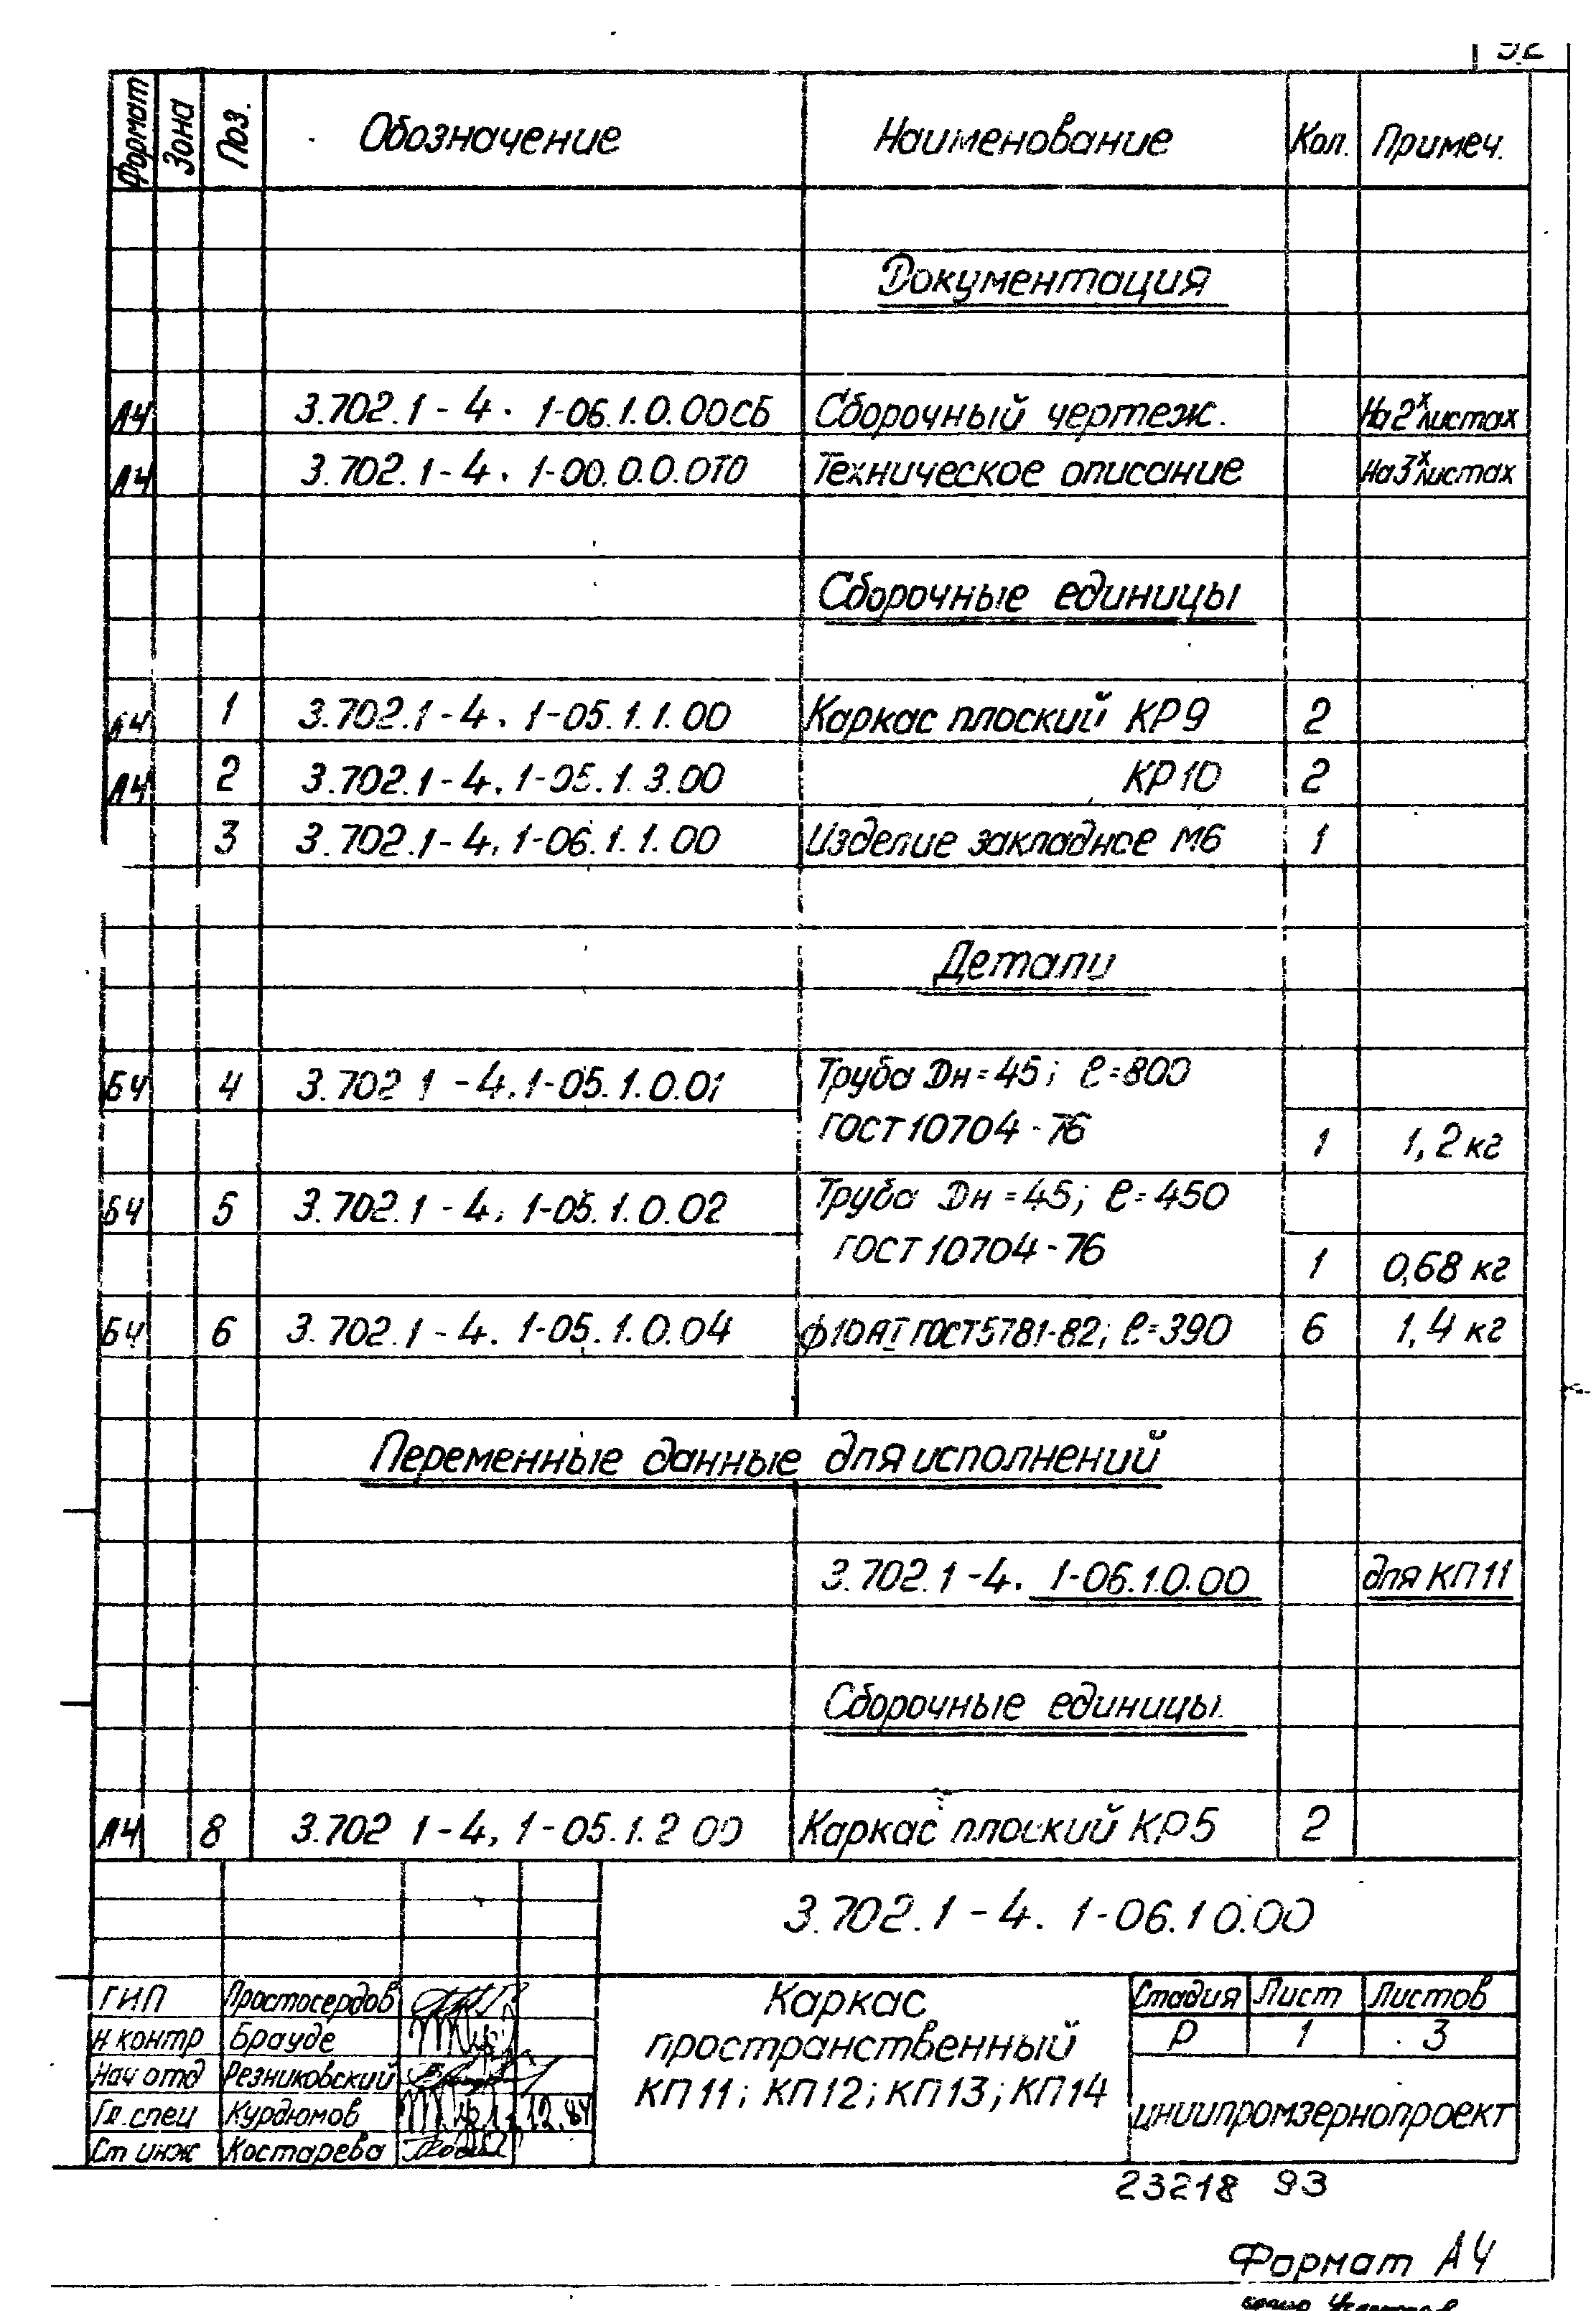 92
Формат Зона Поз. Обозначение Наименование Кол. Примеч.
Документация
А4 3.702.1-4. 1-06.1.0.00СБ Сборочный чертеж. На 2х листах
А4 3.702.1-4. 1-00.0.0.0ТО Техническое описание На 3х листах
Сборочные единицы
А4 1 3.702.1-4. 1-05.1.1.00 Каркас плоский КР9 2
А4 2 3.702.1-4. 1-05.1.3.00 КР10 2
3 3.702.1-4. 1-06.1.1.00 Изделие закладное М6 1
Детали
БЧ 4 3.702 1-4. 1-05.1.0.01 Труба Dн=45; ℓ=800
ГОСТ 10704-76 1 1,2 кг
БЧ 5 3.702.1-4. 1-05.1.0.02 Труба Dн=45; ℓ=450
ГОСТ 10704-76 1 0,68 кг
БЧ 6 3.702.1-4. 1-05.1.0.04 ф10АI ГОСТ 5781-82; ℓ=390 6 1,4 кг
Переменные данные для исполнений
3.702.1-4. 1-06.1.0.00 для КП11
Сборочные единицы.
А4 8 3.702 1-4. 1-05.1.2 00 Каркас плоский КР5 2
3.702.1-4. 1-06.1 0.00
ГИП Простосердов
Н контр Брауде
Нач отд Резниковский
Гл. спец Курдюмов 12.84
Ст инж Костарева
Каркас
пространственный
КП11; КП12; КП13; КП14
Стадия Лист Листов
Р 1 3
ЦНИИПРОМЗЕРНОПРОЕКТ
23218 93
Формат А4